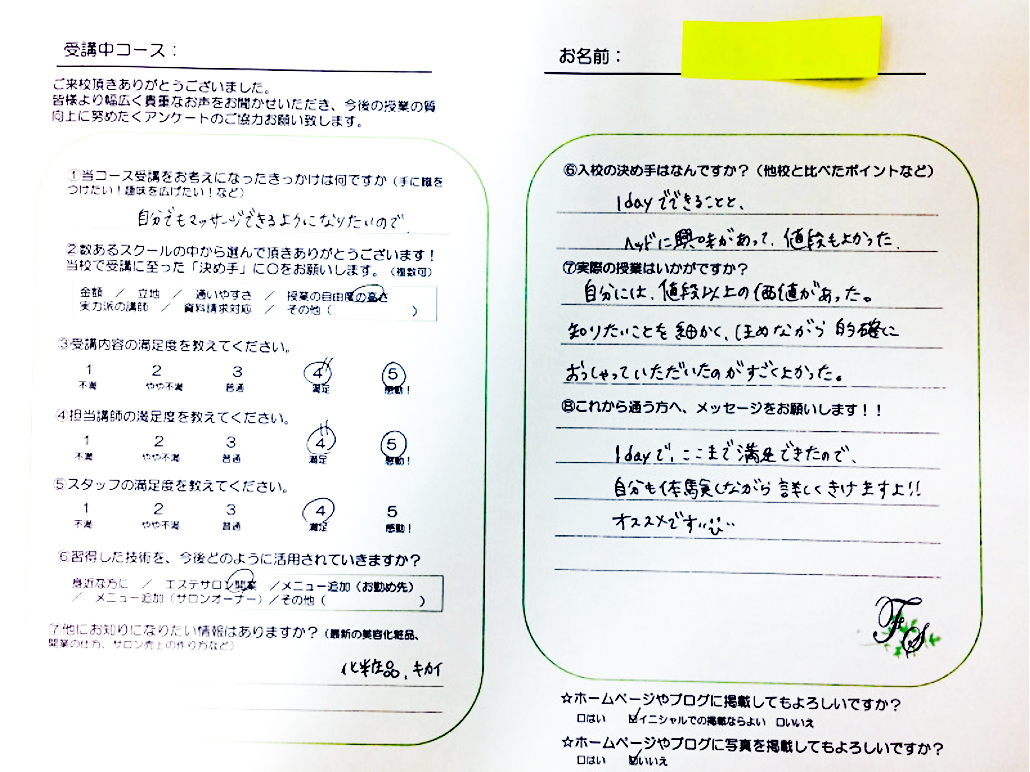 受講中コース：
ご来校頂きありがとうございました。
皆様より幅広く貴重なお声をお聞かせいただき、今後の授業の質
向上に努めたくアンケートのご協力お願い致します。
①当コース受講をお考えになったきっかけは何ですか（手に職を
つけたい！趣味を広げたい！など）
自分でもマッサージできるようになりたいので
②数あるスクールの中から選んで頂きありがとうございます！
当校で受講に至った「決め手」に〇をお願いします。（複数可）
金額 ／ 立地 ／ 通いやすさ ／ 授業の自由度の高さ
実力派の講師 ／ 資料請求対応 ／ その他（ ）
③受講内容の満足度を教えてください。
1 2 3 4 5
不満 やや不満 普通 満足 感動！
④担当講師の満足度を教えてください。
1 2 3 4 5
不満 やや不満 普通 満足 感動！
⑤スタッフの満足度を教えてください。
1 2 3 4 5
不満 やや不満 普通 満足 感動！
⑥習得した技術を、今後どのように活用されていきますか？
身近な方に ／ エステサロン開業 ／メニュー追加（お勤め先）
／ メニュー追加（サロンオーナー）／その他（ ）
⑦他にお知りになりたい情報はありますか？（最新の美容化粧品、
開業の仕方、サロン売上の作り方など）
化粧品、キカイ
お名前：
⑥入校の決め手はなんですか？（他校と比べたポイントなど）
1dayでできることと、
ヘッドに興味があって、値段もよかった.
⑦実際の授業はいかがですか？
自分には、値段以上の価値があった。
知りたいことを細かく、ほめながら的確に
おっしゃっていただいたのがすごくよかった。
⑧これから通う方へ、メッセージをお願いします！！
1dayで、ここまで満足できたので、
自分も体験しながら詳しくきけますよ!!
オススメです
FS
☆ホームページやブログに掲載してもよろしいですか？
□はい ☑イニシャルでの掲載ならよい □いいえ
☆ホームページやブログに写真を掲載してもよろしいですか？
□はい ☑いいえ